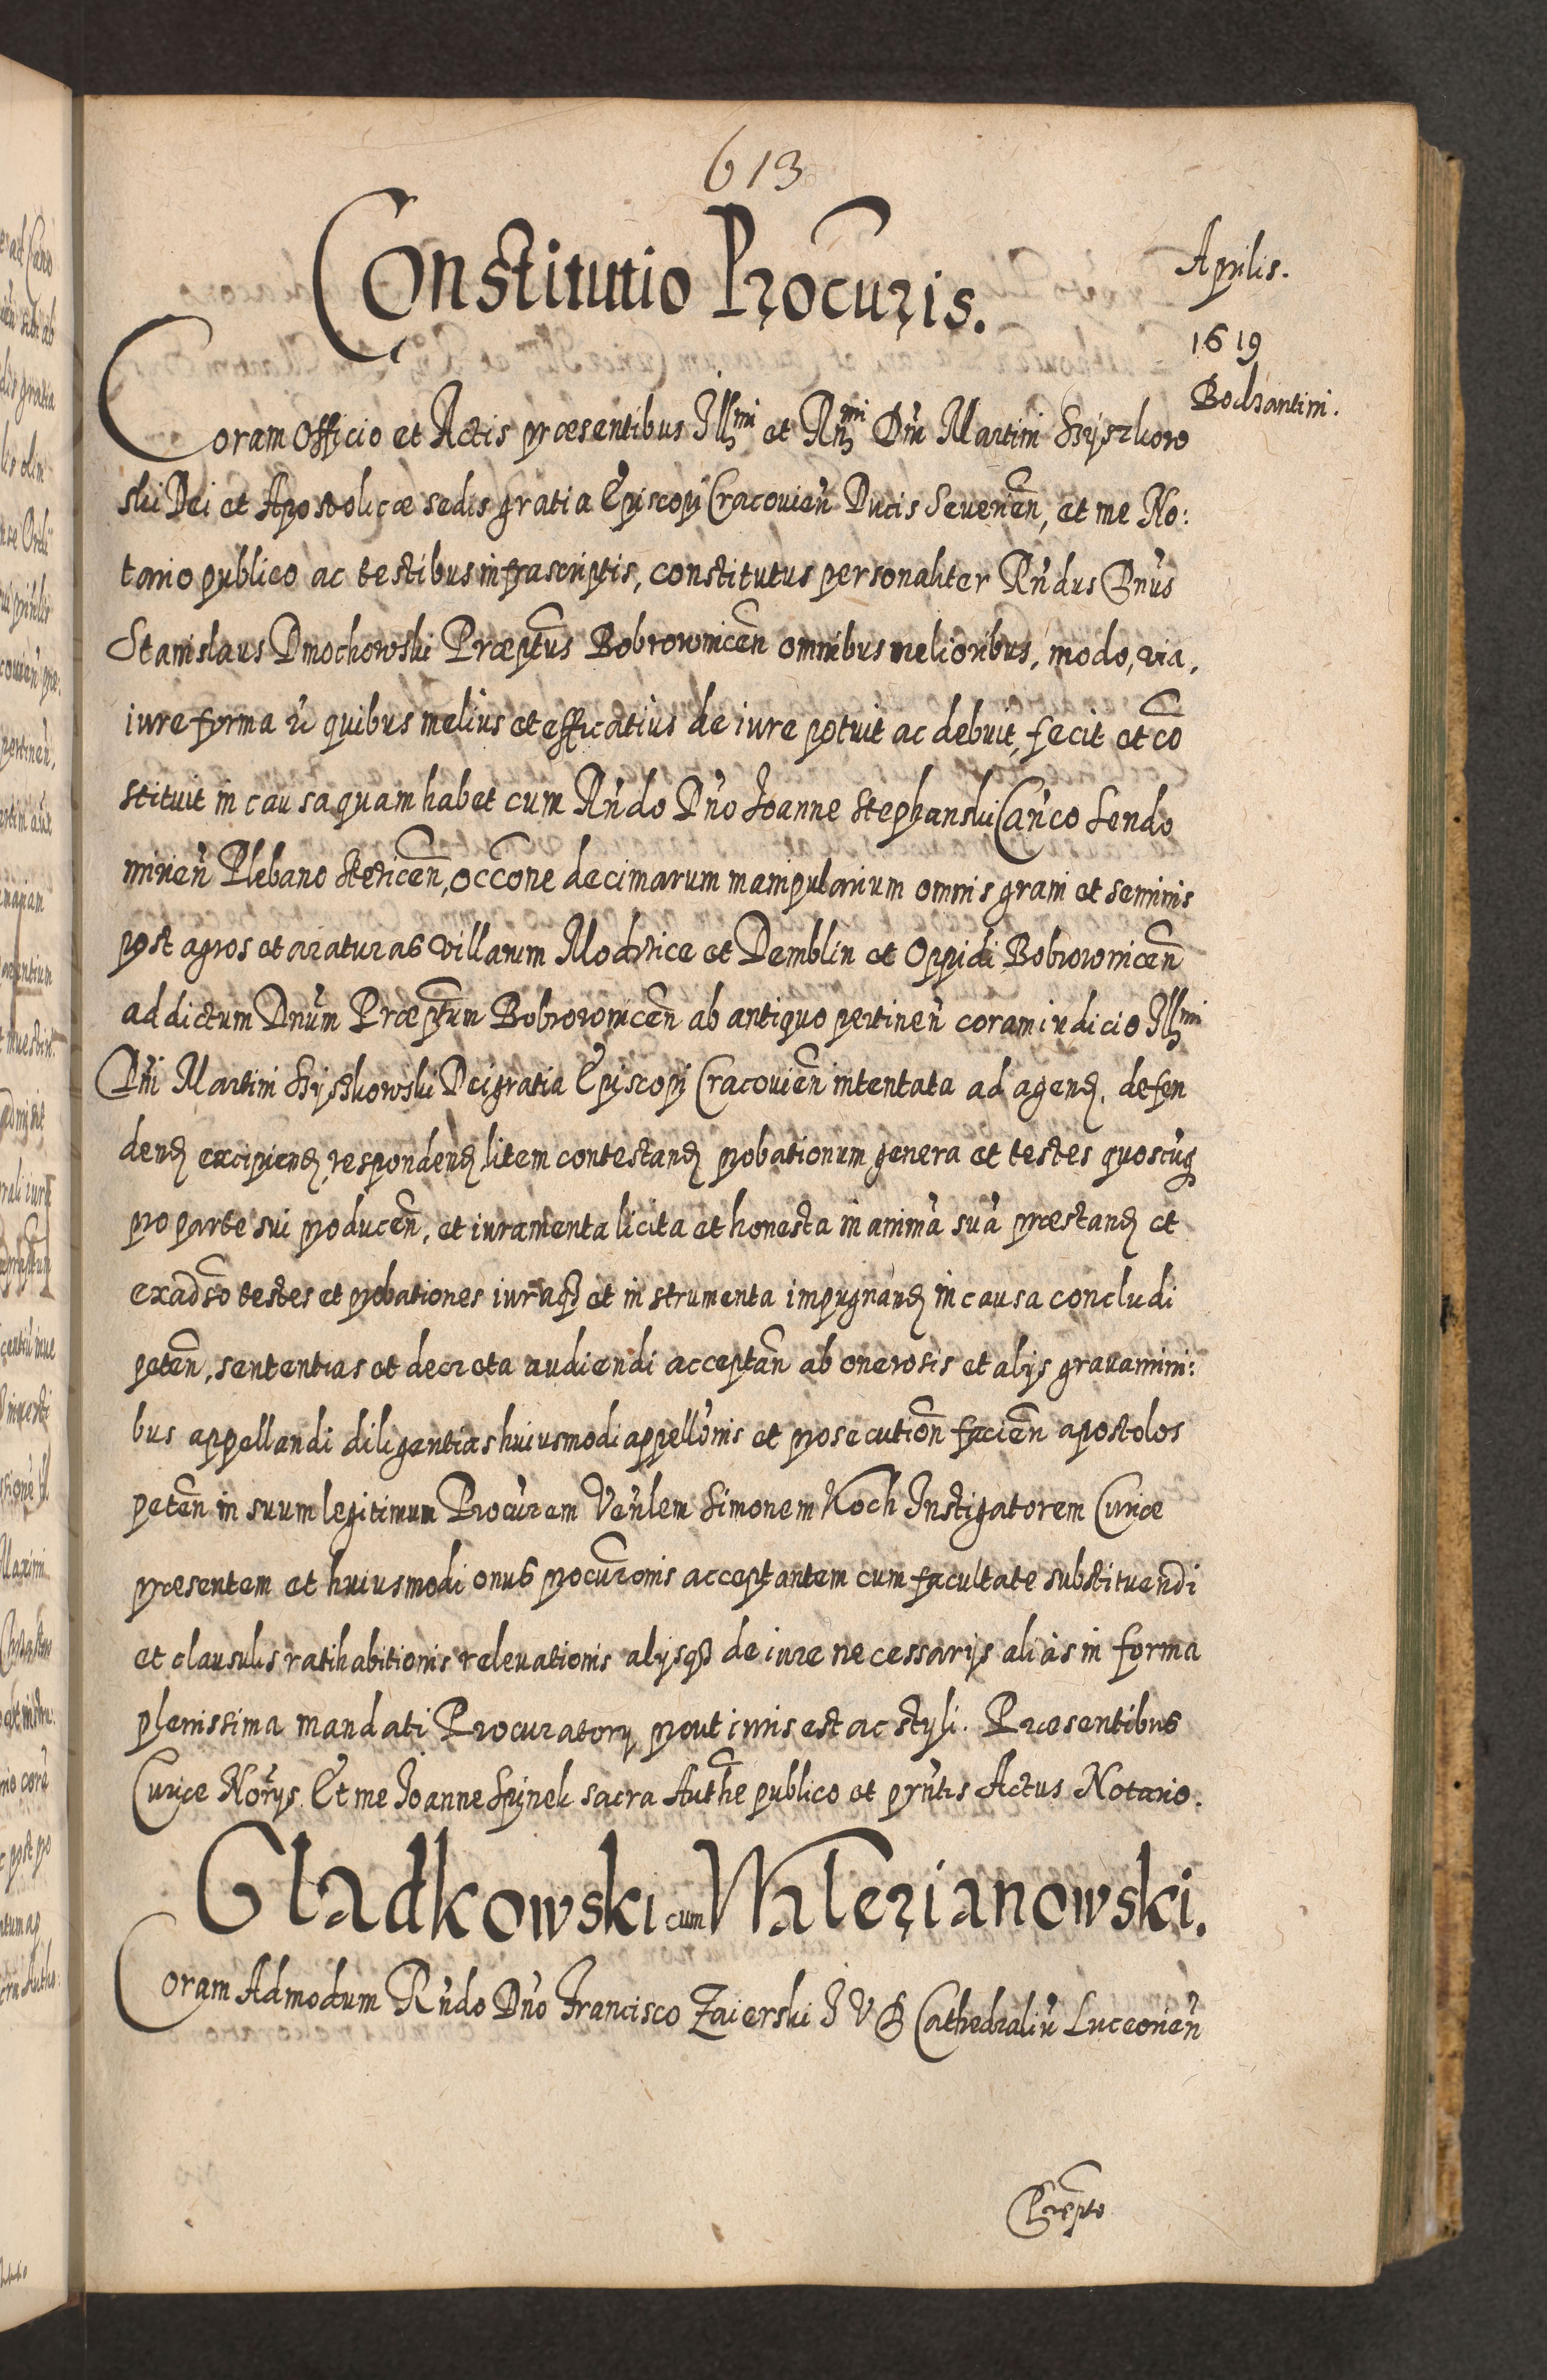 613
Constitutio Procuris.
Aprilis.
1619
Bodzantini.
Coram Officio et Actis præsentibus Illmi et Rñmi Dñi Martini Szyszkow
ski Dei et Apostolicæ sedis gratia Episcopi Cracovień Ducis Severień, et me No:
tario publico ac testibus infrascriptis, constitutus personaliter Rñdus Dñus
Stanislaus Dmochowski Præptus Bobrownicen omnibus melioribus, modo, via,
iure forma ÿ quibus melius et efficatius de iure potuit ac debuit, fecit et cō
stituit in causa quam habet cum Rñdo Dño Ioanne Stephanski Cañco Sendo
mirień Plebano Stezicen, occone decimarum manipularium omnis grani et seminis
post agros et araturas villarum Modrzice et Demblin et Oppidi Bobrownicen
ad dictum Dnum Præptum Bobrownicen ab antiquo pertineñ coram iudicio Illmi
Dñi Martini Szyszkowski Dei gratia Episcopi Cracovien intentata ad agend, defen
dend excipiend, respondend litem contestand probationum genera et testes quoscuq
pro parte sui producen, et iuramenta licita et honesta in animā suā præstand et
exadso testes et probationes iuraq et instrumenta impugnand in causa concludi
peten, sententias et decreta audiendi acceptan ab onerosis et alijs gravamini:
bus appellandi diligentias huiusmodi appellonis et prosecution facien apostolos
peten in suum legitimum Procurem Venlem Simonem Koch Instigatorem Curiæ
præsentem et huiusmodi onus procuronis acceptantem cum facultate substituendi
et clausulis ratihabitionis relevationis alijsq de iure necessarijs aliàs in forma
plenissima mandati Procuratorij prout iuris est ac styli. Præsentibus
Curiæ Norijs. Et me Ioanne Spinek sacra Authe publico et prñtis Actus Notario.
Gladkowski cum Walerianowski.
Coram Admodum Rñdo Dño Francisco Zaierski I V D Cathedraliũ Luceorień
Præpto